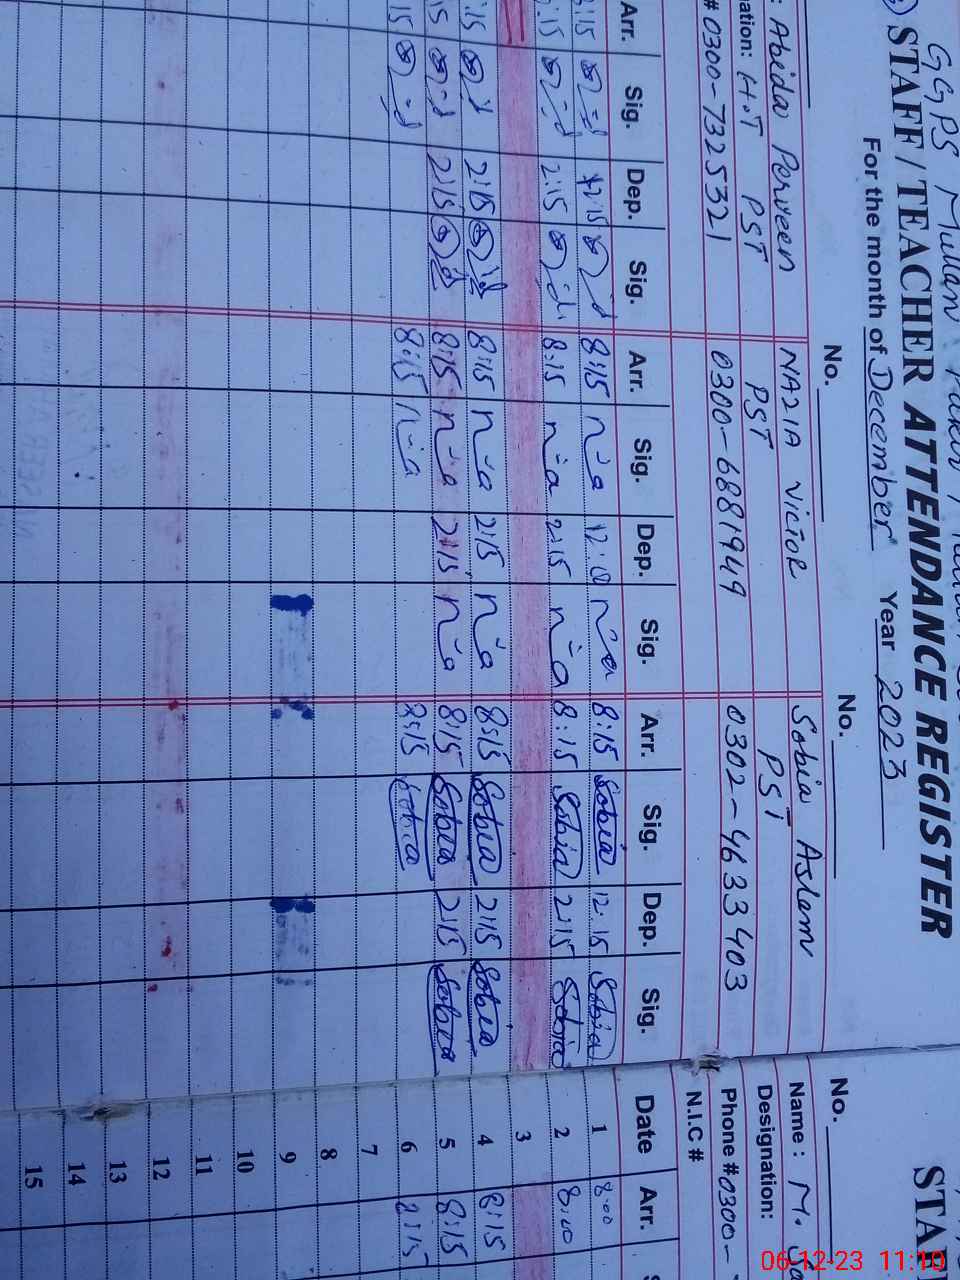 GGPS Mullan
STAFF / TEACHER ATTENDANCE REGISTER
For the month of December Year 2023
No. No.
: Abida Perveen NAZIA VICTOR Sobia Aslem
nation: H.T PST PST PST
# 0300-7325321 0300-6881949 0302-4633403
Arr. Sig. Dep. Sig. Arr. Sig. Dep. Sig. Arr. Sig. Dep. Sig.
8:15 12:15 8:15 n-a 8:15 Sobia 12:15 Sobia
:15 2:15 8:15 n-a 2:15 n-a 8:15 Sobia 2:15 Sobia
:15 2:15 8:15 n-a 2:15 n-a 8:15 Sobia 2:15 Sobia
:15 2:15 8:15 n-a 2:15 n-a 8:15 Sobia 2:15 Sobia
:15 8:15 n-a 8:15 Sobia
STAF
No.
Name : M.
Designation:
Phone # 0300-
N.I.C #
Date Arr. S
1 8:00
2 8:00
3
4 8:15
5 8:15
6 8:15
7
8
9
10
11
12
13
14
15
06-12-23 11:10